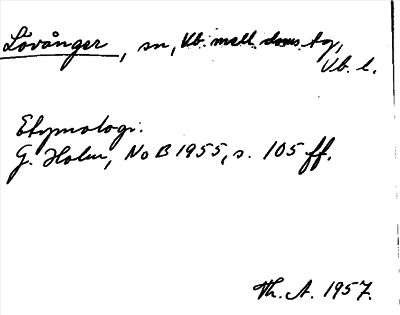 Lövånger, sn, Vb. mell. doms. tg,
Vb. l.
Etymologi:
G. Holm, NoB 1955, s. 105 ff.
Th. A. 1957.